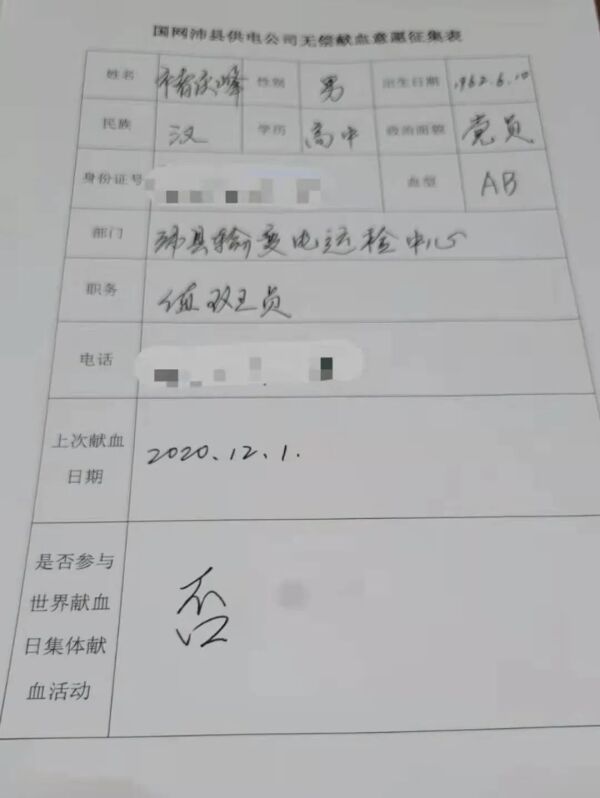 国网沛县供电公司无偿献血意愿征集表
姓名 庆峰 性别 男 出生日期 1962.6.10
民族 汉 学历 高中 政治面貌 党员
身份证号 血型 AB
部门 沛县输变电运检中心
职务 值班员
电话
上次献血
日期
2020.12.1.
是否参与
世界献血
日集体献
血活动
否